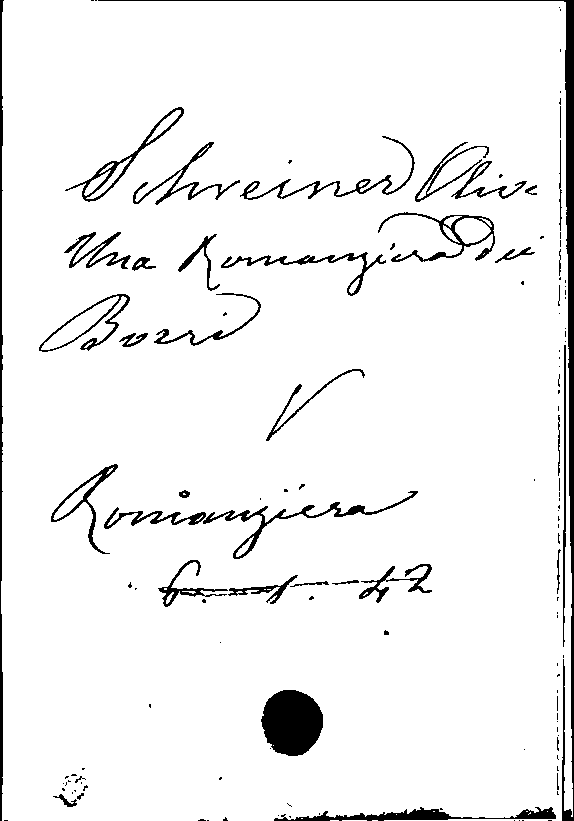 Schreiner Oliv.
Una Romanziera dei
Boeri
V
Romanziera
6. 1. 42